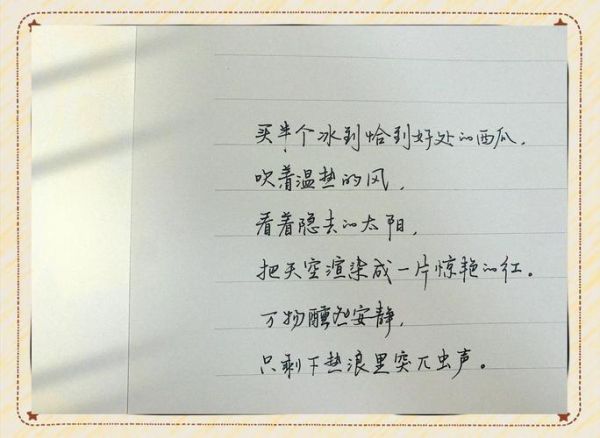 买半个冰到恰到好处的西瓜，
吹着温热的风，
看着隐去的太阳，
把天空渲染成一片惊艳的红。
万物醺然安静，
只剩下热浪里突兀虫声。